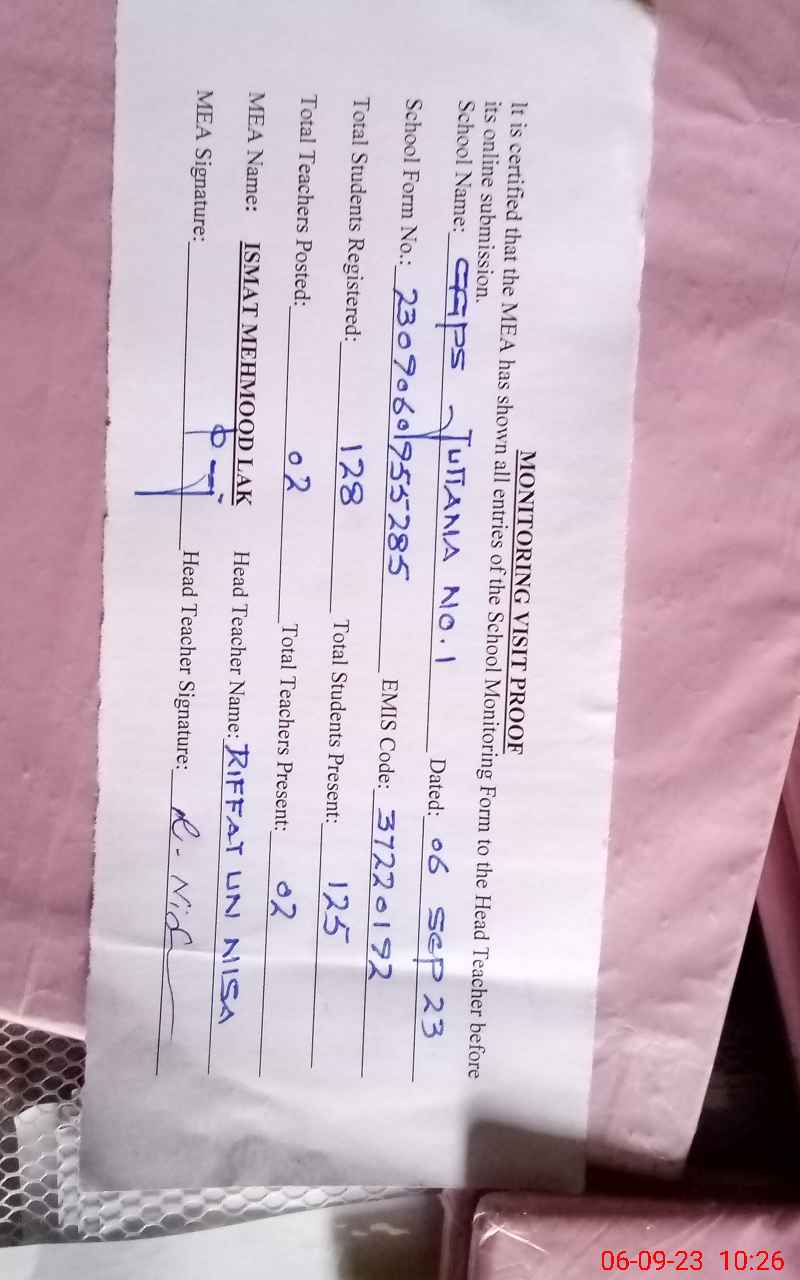 MONITORING VISIT PROOF
It is certified that the MEA has shown all entries of the School Monitoring Form to the Head Teacher before
its online submission.
School Name: GGPS JUTIANA NO.1 Dated: 06 SEP 23
School Form No.: 23090601955285 EMIS Code: 37220192
Total Students Registered: 128 Total Students Present: 125
Total Teachers Posted: 02 Total Teachers Present: 02
MEA Name: ISMAT MEHMOOD LAK Head Teacher Name: RIFFAT UN NISA
MEA Signature: Head Teacher Signature:
06-09-23 10:26